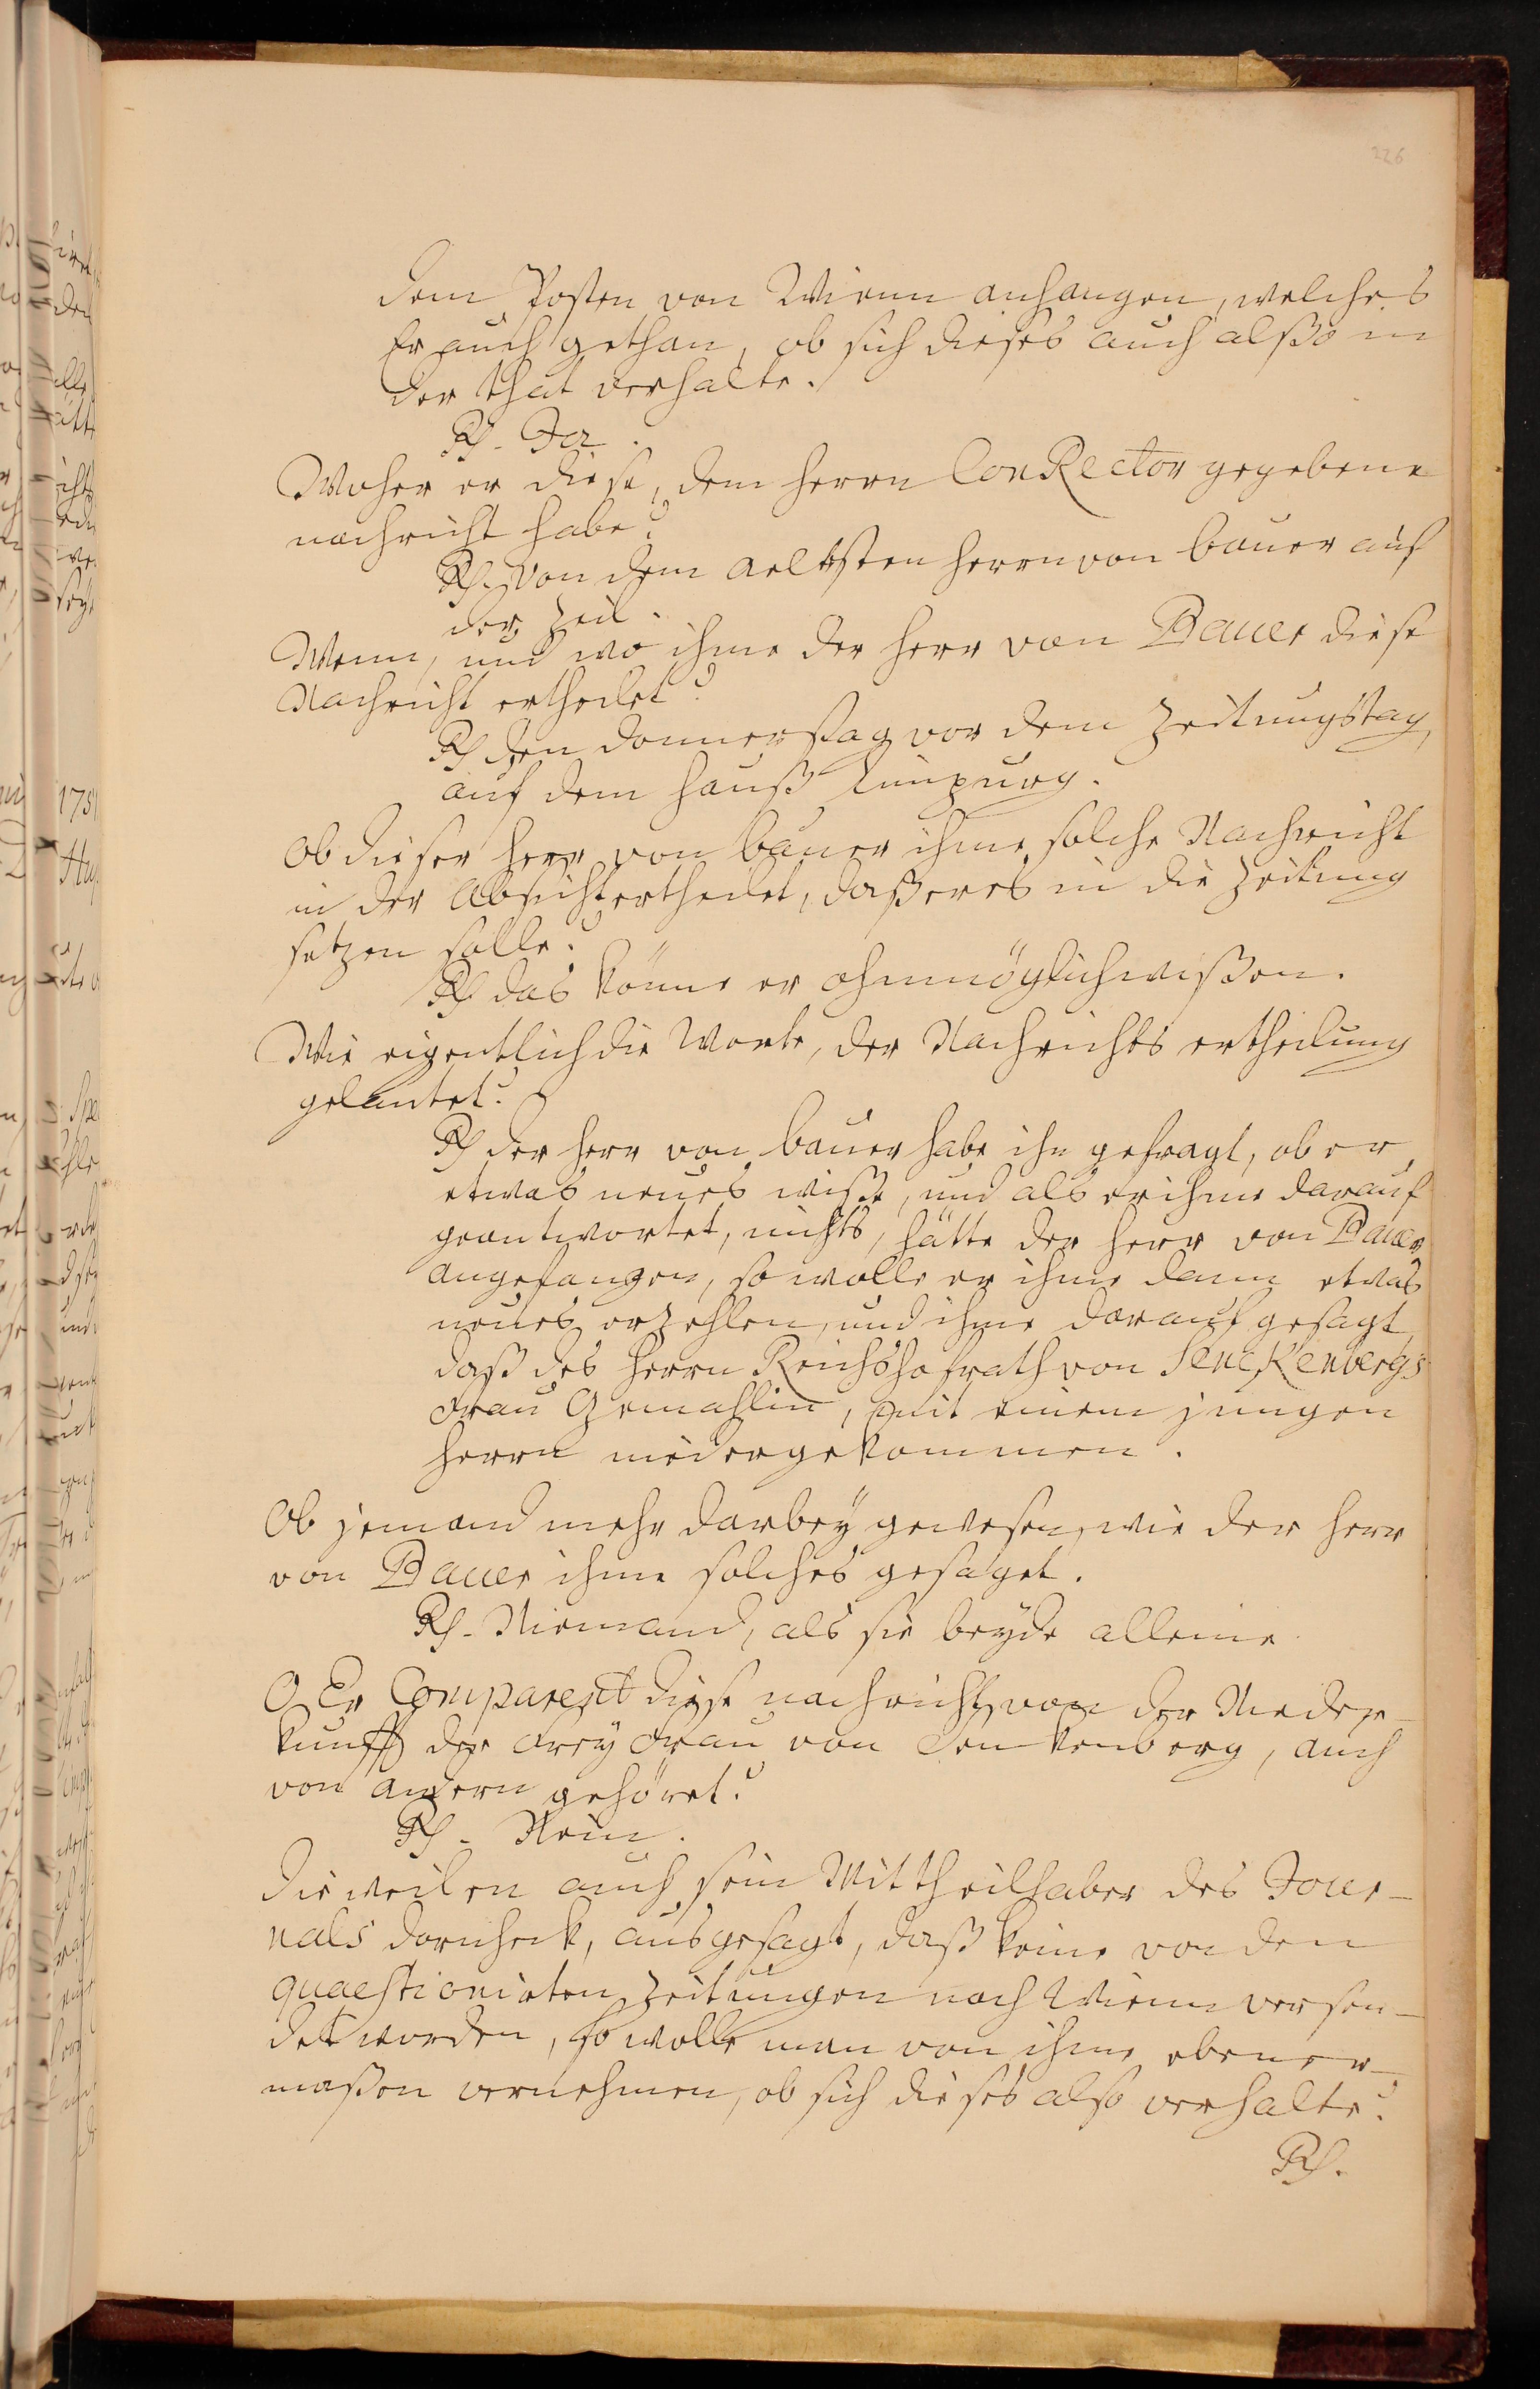 226
dem Posten von Wienn anhangen, welches
Er auch gethan, ob sich dieses auch alßo in
der that verhalte.
Rh. Ja.
Woher er diese, dem Herrn ConRector gegebene
nachricht habe?
Rh. Von dem aeltesten Herrn von Bauer auf
der Zeil.
Wenn, und wo ihme der Herr von Bauer diese
Nachricht ertheilet?
Rh den Donnerstag vor dem Zeitungstag,
auf dem Hauß Limpurg.
Ob dieser Herr von Bauer ihme solche Nachricht
in der Absicht ertheilet, daß er es in die Zeitung
setzen solle?
Rh das könne er ohnmöglich wißen.
Wie eigentlich die Worte, der Nachrichts ertheilung
gelautet?
Rh der Herr von Bauer habe ihn gefragt, ob er
etwas neues wiße, und als er ihme darauf
geantwortet, nichts, hätte der Herr von Bauer
angefangen, so wolle er ihme dann etwas
neues erzehlen, und ihme darauf gesagt,
daß des Herrn Reichshofrath von Senckenbergs
Frau Gemahlin, mit einem jungen
Herrn niedergekommen.
Ob jemand mehr darbeÿ gewesen, wie der Herr
von Bauer ihme solches gesaget.
Rh. Niemand, als sie beÿde alleine
O Er Comparent diese nachricht, von der Nieder-
kunfft der Freÿ Frau von Senkenberg, auch
von andern gehöret?
Rh. Nein.
Dieweilen auch sein Mittheilhaber des Jour-
nals Dornheck, ausgesagt, daß keine von den
quaestionirten Zeitungen nach Wienn versen-
det worden, so wolle man von ihme ebener-
maßen vernehmen, ob sich dieses also verhalte?
Rh.